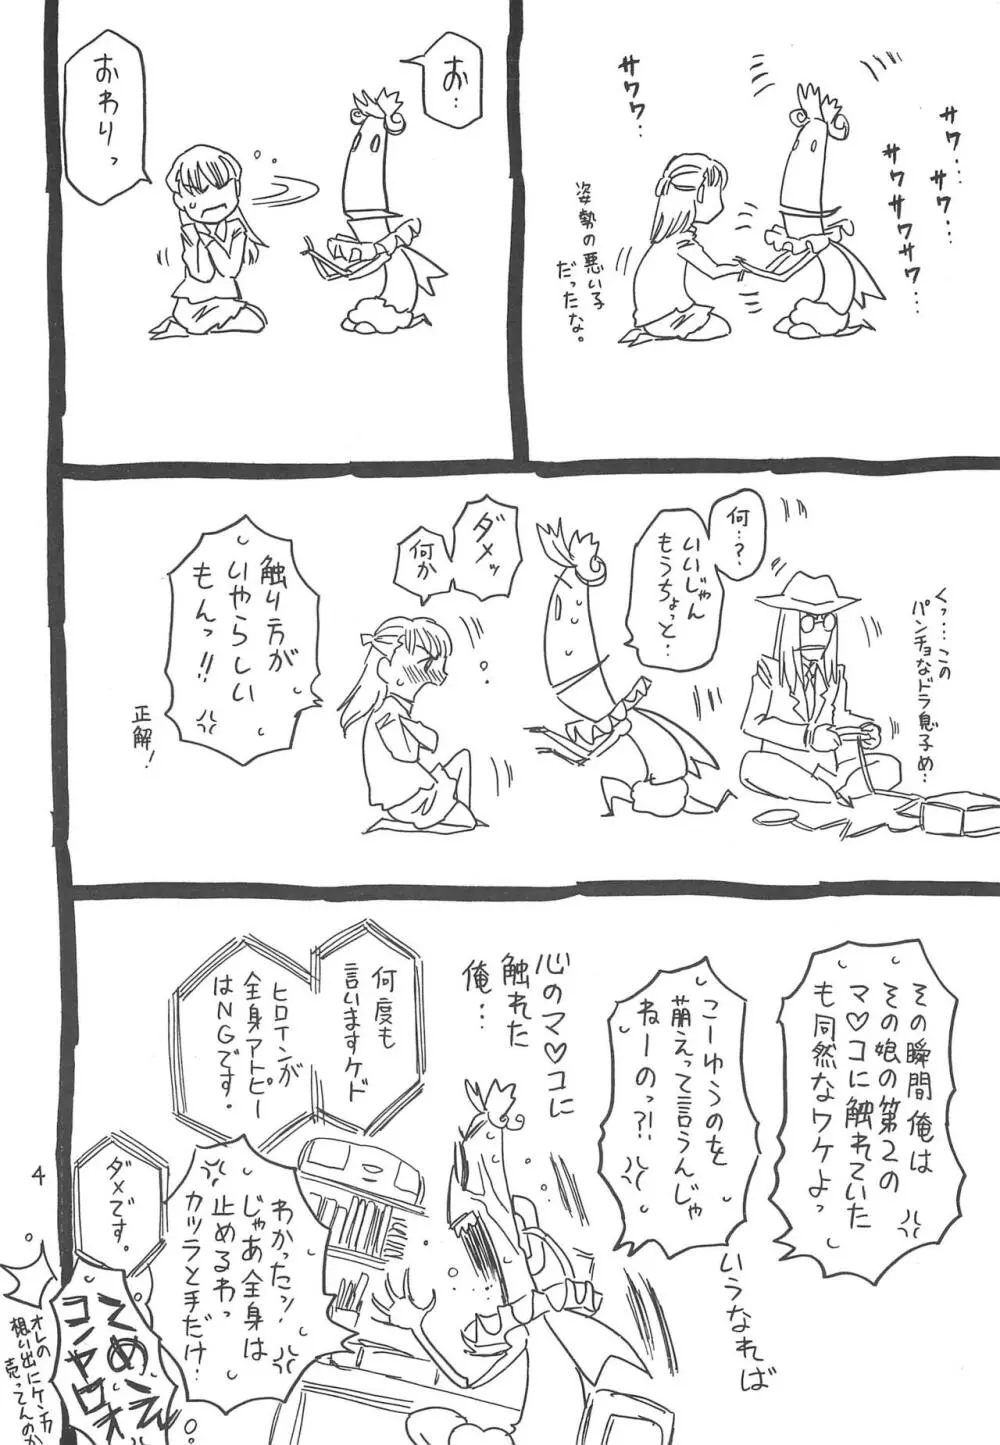 サワ…サワ…
サワサワサワ…
サワワ…
姿勢の悪い子
だったな。
お…
おわりっ
くっ…この
パンチョなドラ息子め…
何…?
いいじゃん
もうちょっと…
ダメッ
何か
触り方が
いやらしい
もんっ!!
正解!
その瞬間俺は
その娘の第2の
マ♡コに触れていた
も同然なワケよっ
こーゆうのを
萌えって言うんじゃ
ねーのっ?!
いうなれば
心のマ♡コに
触れた
俺…
何度も
言いますケド
ヒロインが
全身アトピー
はNGです。
わかったッ!
じゃあ全身は
止めるわっ
カツラと手だけ
ダメです。
てめェ
コンヤロオ
オレの
想い出にケンカ
売ってんのか
4